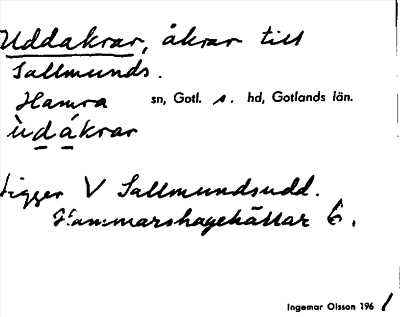 Uddakrar, åkrar till
Sallmunds.
Hamra sn, Gotl. s. hd, Gotlands län.
ùdákrar
Ligger V Sallmundsudd.
Hammarshagehällar 6.
Ingemar Olsson 1961